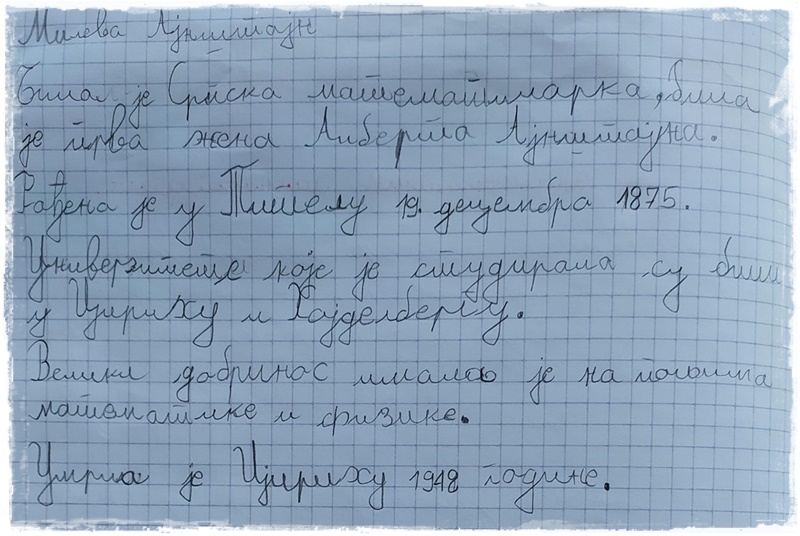 Милева Ајнштајн
Била је Српска математичарка, била
је прва жена Алберта Ајнштајна.
Рођена је у Тителу 19. децембра 1875.
Универзитете које је студирала су били
у Цириху и Хајделбергу.
Велики добринос имала је на пољима
математике и физике.
Умрла је Цириху 1948 године.